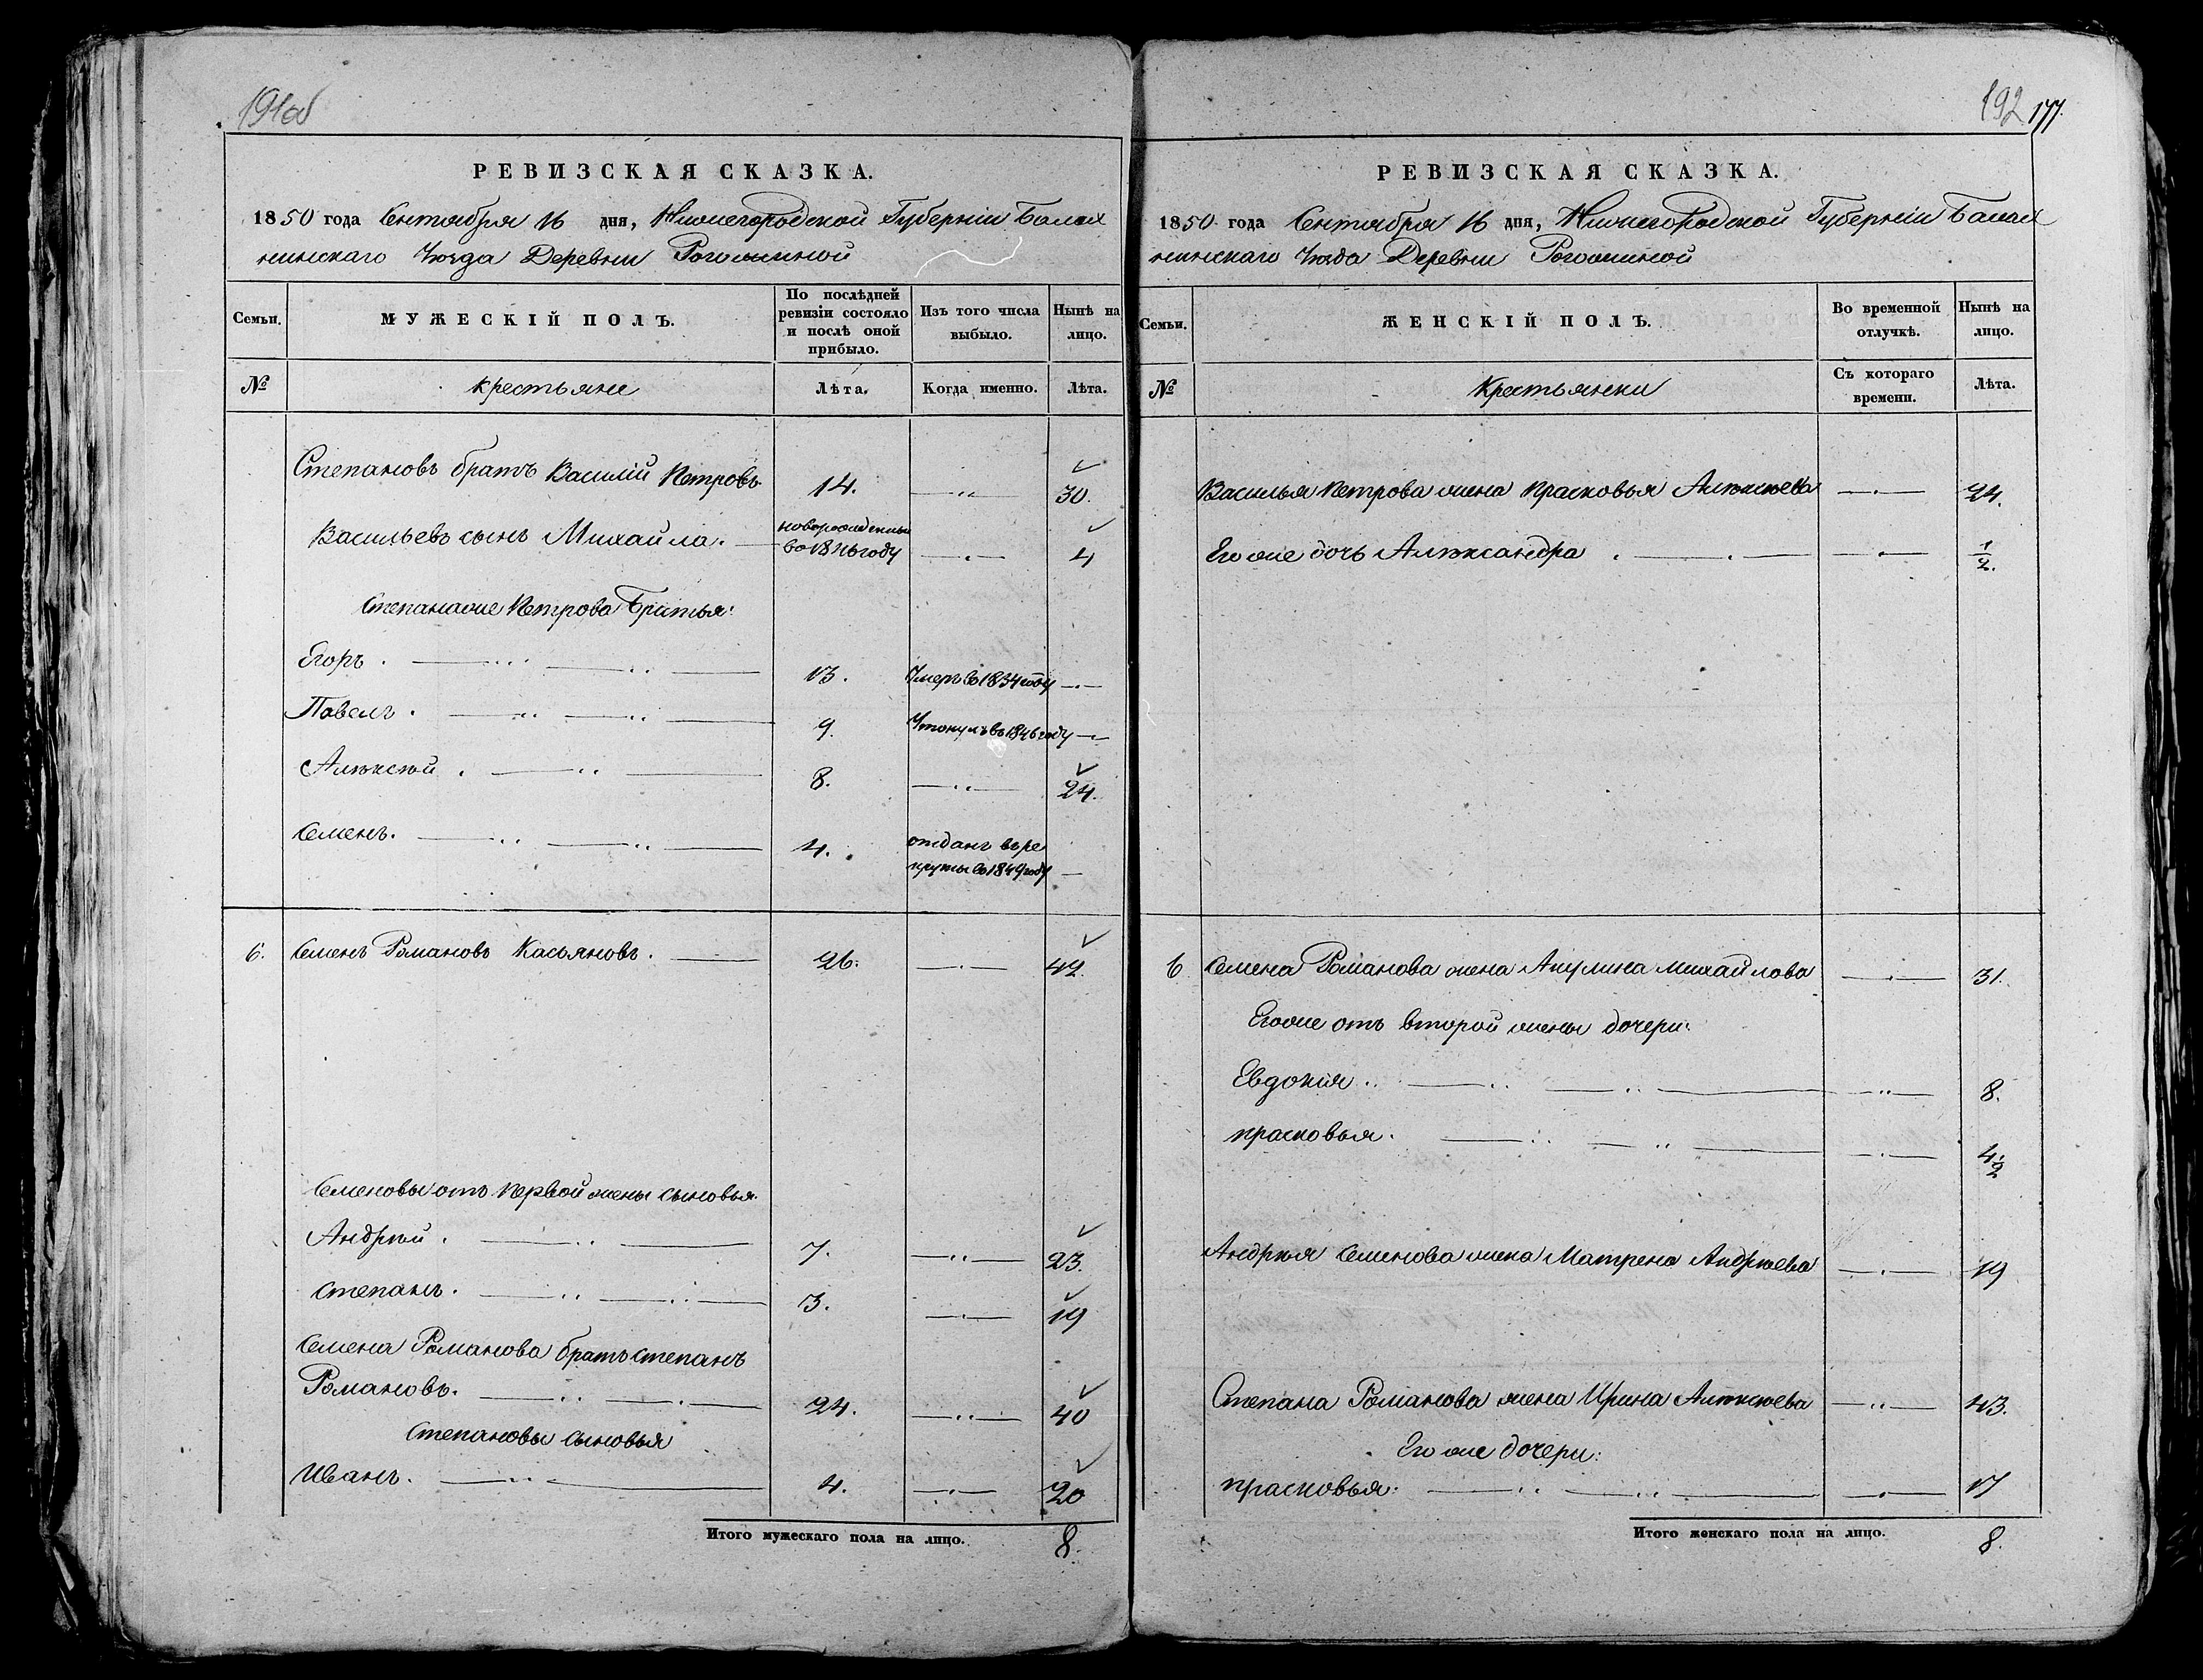 191об
РЕВИЗСКАЯ СКАЗКА.
1850 года Сентября 16 дня, Нижегородской Губерніи Балах
нинскаго Уѣзда Деревни Рогожиной
Семьи.
МУЖЕСКІЙ ПОЛЪ.
По послѣдней
ревизіи состояло
и послѣ оной
прибыло.
Изъ того числа
выбыло.
Нынѣ на
лицо.
№
крестьяне
Лѣта.
Когда именно.
Лѣта.
Степановъ братъ Василій Петровъ 14. 30.
Васильевъ сынъ Михайла. новорожденный
во 1846 году 4
Степанаже Петрова Братья:
Егоръ. 13. Умеръ во 1834 году
Павелъ. 9. Утонулъ въ 1846 году
Алѣксѣй. 8. 24.
Семенъ. 4. отданъ въ ре
круты во 1849 году
6. Семенъ Романовъ Касьяновъ. 26. 42.
Семеновы отъ первой жены сыновья.
Андрѣй. 7. 23.
Степанъ. 3. 19
Семена Романова братъ Степанъ
Романовъ. 24. 40
Степановы сыновья
Иванъ. 4. 20
Итого мужескаго пола на лицо. 8.
192 177.
РЕВИЗСКАЯ СКАЗКА.
1850 года Сентября 16 дня, Нижегородской Губерніи Балах
нинскаго Уѣзда Деревни Рогожиной
Семьи.
ЖЕНСКІЙ ПОЛЪ.
Во временной
отлучкѣ.
Нынѣ на
лицо.
№
Крестьянки
Съ котораго
времени.
Лѣта.
Василья Петрова жена Прасковья Алѣксѣева 24.
Его же дочь Алѣксандра 1/2.
6 Семена Романова жена Акулина Михайлова 31.
Егоже отъ второй жены дочери:
Евдокія 8.
Прасковья. 4 1/2
Андрѣя Семенова жена Матрена Андрѣева 19
Степана Романова жена Ирина Алѣксѣева 43.
Его же дочери:
Прасковья: 17
Итого женскаго пола на лицо. 8.